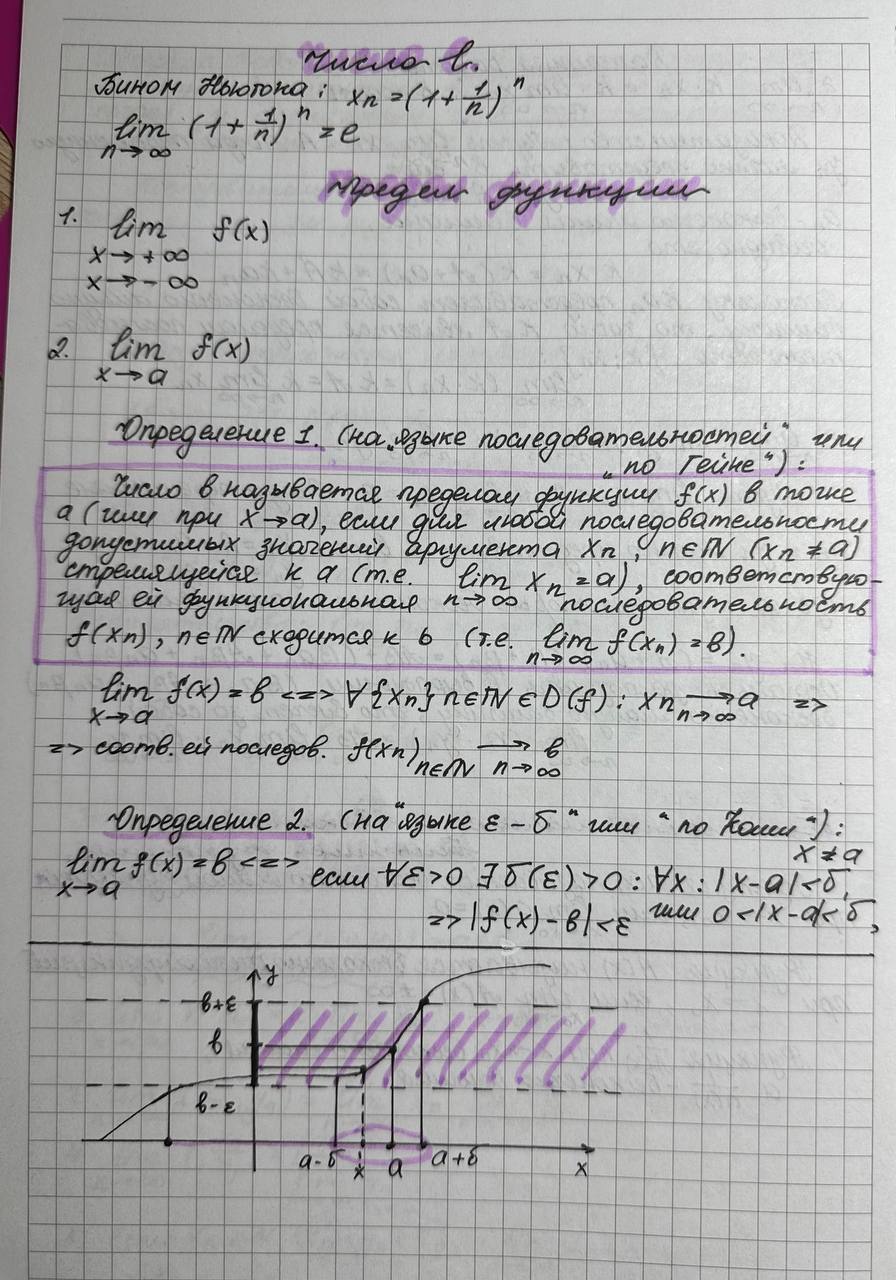 Число e.
Бином Ньютона: xn = (1 + 1/n)^n
lim (1 + 1/n)^n = e
n→∞
Предел функции
1. lim f(x)
x→+∞
x→-∞
2. lim f(x)
x→a
Определение 1. (на „языке последовательностей“ или
„по Гейне“):
Число в называется пределом функции f(x) в точке
a (или при x→a), если для любой последовательности
допустимых значений аргумента xn, n∈ℕ (xn ≠ a)
стремящейся к a (т.е. lim xn = a), соответствую-
n→∞
щая ей функциональная последовательность
f(xn), n∈ℕ сходится к b (т.е. lim f(xn) = в).
n→∞
lim f(x) = в <=> ∀{xn} n∈ℕ ∈ D(f): xn → a =>
x→a n→∞
=> соотв. ей послед. f(xn) n∈ℕ → в
n→∞
Определение 2. (на “языке ε-δ“ или “по Коши“):
x ≠ a
lim f(x) = в <=> если ∀ε>0 ∃δ(ε)>0: ∀x: |x-a|<δ,
x→a
=> |f(x)-в|<ε или 0<|x-a|<δ,
y
в+ε
в
в-ε
a-δ x a a+δ x